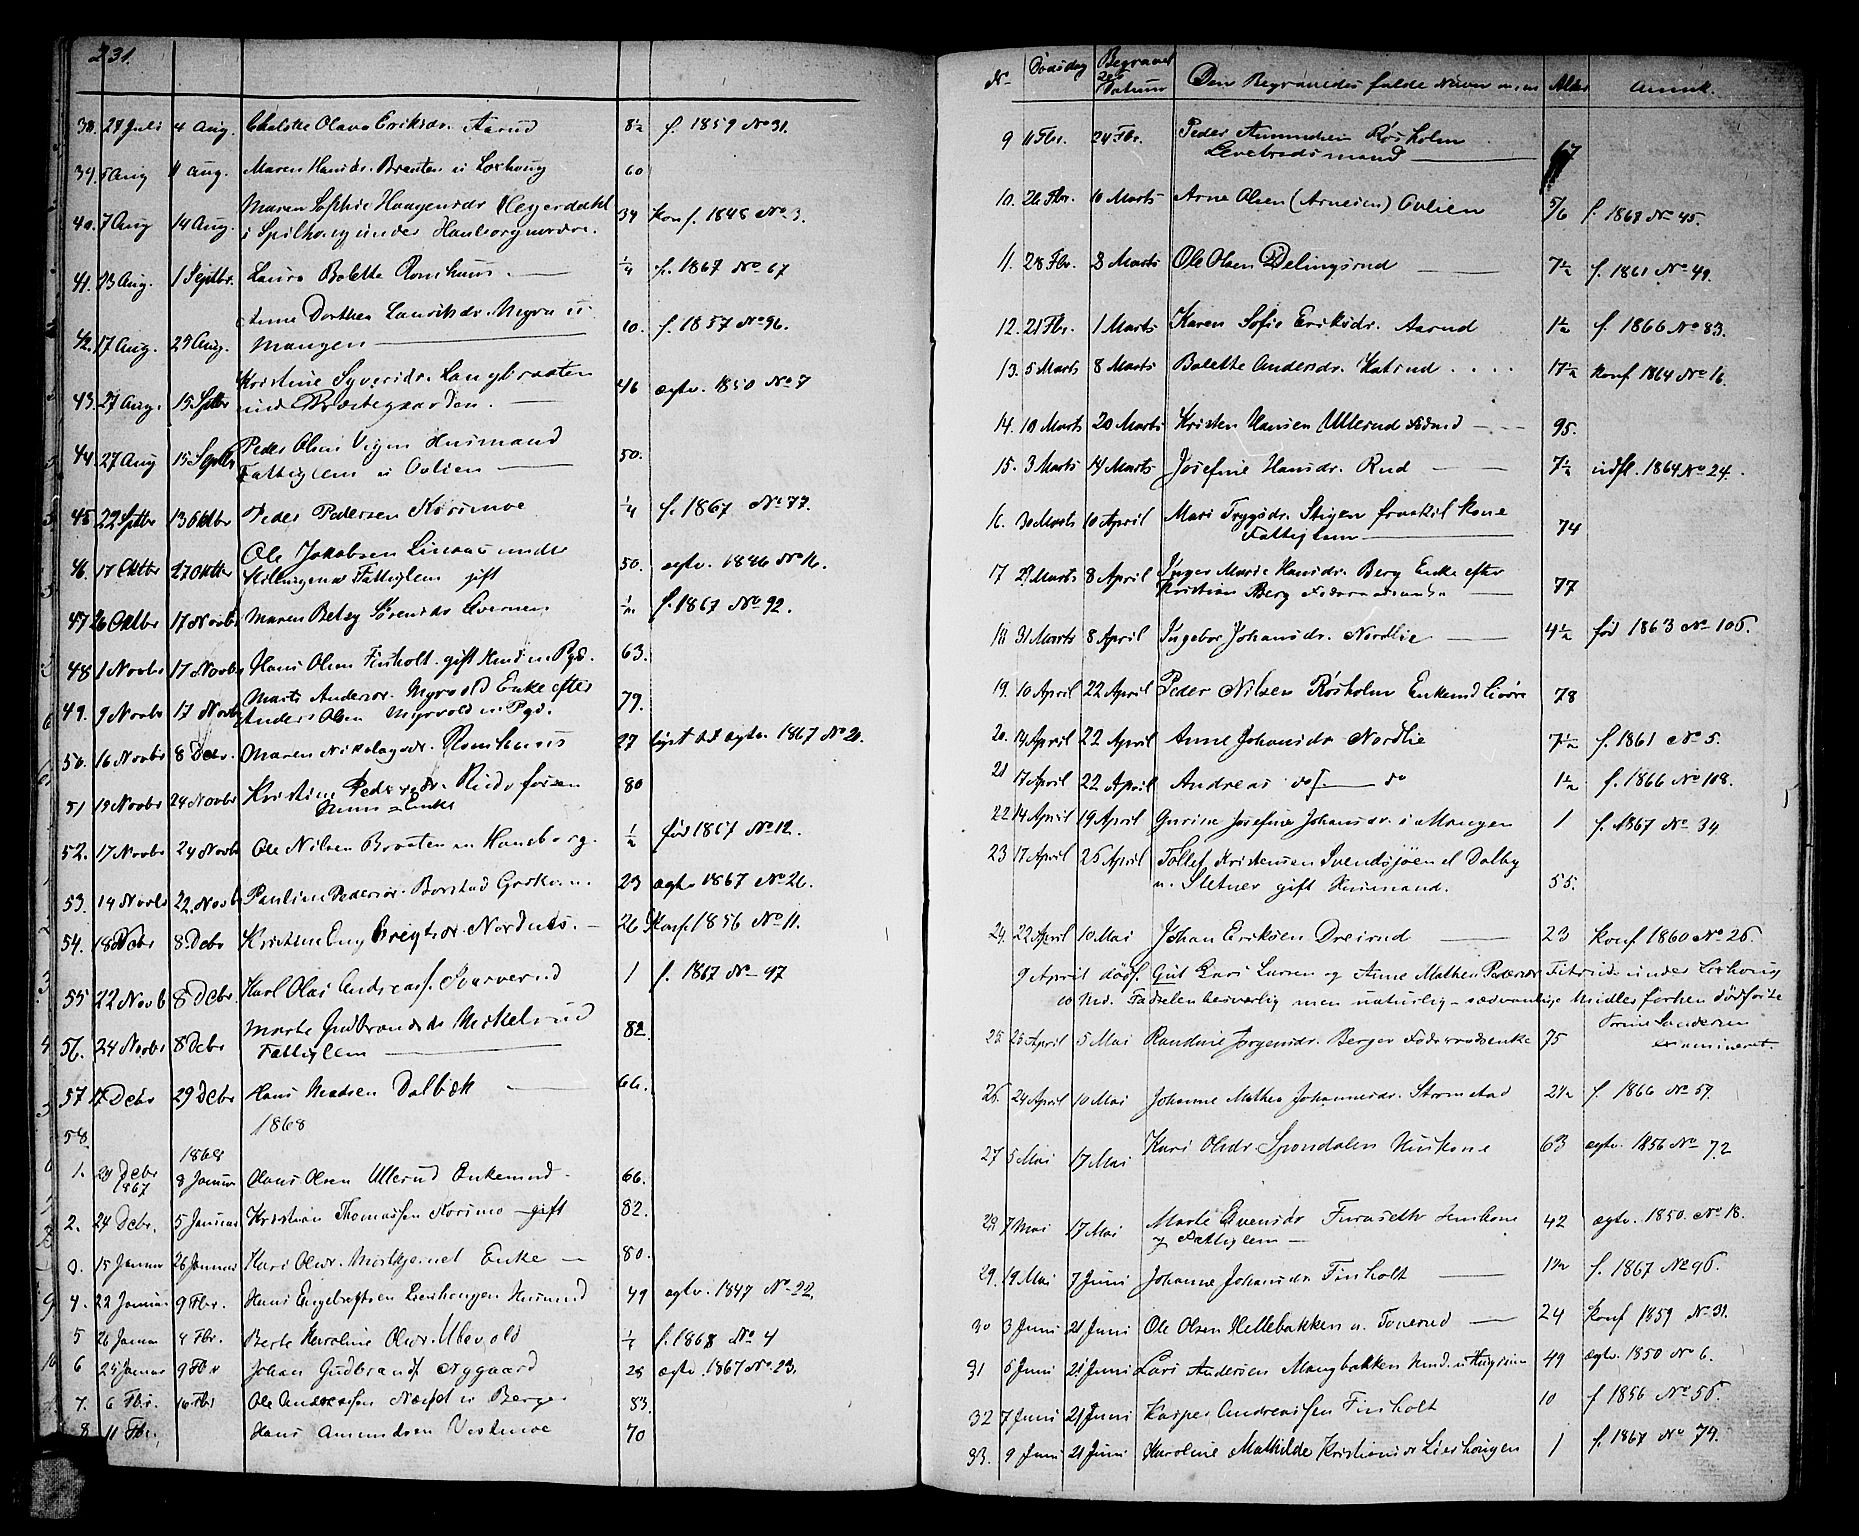 231.
38. 27 Juli 4 Aug. Olava Eriksdr. Aarud 8½ f. 1859 No 31.
39. 5 Aug 11 Aug. Maren Hansdr. Braaten u Loshoug 60
40. 7 Aug 14 Aug. Maren Sophie Haagensdr Heyerdahl 34 Konf. 1848 No 3.
i Spilhoug under
41. 23 Aug. 1 Septbr. Laura Bolette Romhuus. ¼ f. 1867 No 67
42. 17 Aug. 29 Aug. Anne Dorthea Lauritsdr. Myra i 10. f. 1857 No 96.
Mangen
43. 27 Aug. 15 Sptbr Kristine Syversdr. Langbraaten 46 egtv. 1850 No 7
und Præstegaarden.
44. 27 Aug 15 Septbr Peder Olsen Vigen Husmand 50.
Fattiglem i Ovlien
45 22 Sptbr 13 Oktbr Peder Pedersen Korsmoe ¼ f. 1867 No 77.
46. 17 Oktbr 27 Oktbr Ole Jakobsen 50. egtv. 1846 No 16.
Fattiglem gift
47 26 Oktbr 17 Novbr Maren Betzy Sørensdr ½ f. 1867 No 92.
48 1 Novbr 17 Novbr Hans Olsen Finholt gift Pgd. 63.
49. 9 Novbr 17 Novbr Marte Andersdr. Myrvold Enke efter 79.
Anders Olsen Myrvold u Pgd.
50. 16 Novbr 8 Dcbr. Maren Nikolaysdr. Romhuus 27 lyst til egtv. 1867 No 21.
51 19 Novbr 24 Novbr Kristine Pedersdr. Rudsforsen 80
Enke
52. 17 Novbr 24 Novbr Ole Nilsen Braaten u Haneborg. ½ fød 1867 No 12.
53. 14 Novbr 22. Novbr Pauline Pedersdr. Borstad 23 egtv 1867 No 26.
54. 18 Dcbr 8 Dcbr Kristine Engebregtsdr. Nordnes. 26 Konf. 1856 No 11.
55 22 Novb 8 Dcbr. Karl Olai Andreass. Svarverud 1 f. 1867 No 47
56. 24 Novbr 8 Dcbr Marte Gudbrandsdr Mikelsrud 82.
Fattiglem
57 17 Dcbr 29 Dcbr Hans Madsen Dalbæk 66.
58. 1868
1868
1. 29 Dcbr 1867 8 Januar Hans Olsen Ullerud Enkemnd 66.
2. 24 Dcbr. 5 Januar Kristian Thomassen Korsmo gift 82.
3. 15 Januar 26 Januar Kari Olsdr. Mortkjernet Enke 80.
4. 22 Januar 9 Fbr. Hans Engebretsen Liershougen Husmnd 49 egtv. 1847 No 22.
5 26 Januar 4 Fbr. Berte Karoline Olsdr. Ulvevold ¼ f. 1868 No 4
6 25 Januar 9 Fbr Johan Gudbrands. Nygaard 28 egtv. 1867 No 23.
7. 6 Fbr. 16 Fbr Ole Andreassen u Berger 83.
8 11 Fbr. Hans Amundsen Vestmoe 70
No Dødsdag Begravelses Datum Den Begravedes fulde Navn m.m Alder Anmk.
9 11 Fbr. 24 Fbr. Peder Amundsen Røsholm 67
Levebrødsmand
10. 26 Fbr. 10 Marts Arne Olsen (Arnesen) Ovlien 5/6 f. 1867 No 45.
11. 28 Fbr. 8 Marts Ole Olsen Delingsrud 7½ f. 1861 No 49.
12. 21 Fbr. 1 Marts Karen Sofie Eriksdr. Aarud 1½ f. 1866 No 83.
13. 5 Marts 8 Marts Bolette Andersdr. Katrud 17½ Konf 1864 No 16.
14. 10 Marts 20 Marts Kristen Hansen Ullerud 95.
15. 3 Marts 14 Marts Josefine Hansdr. Rud 7½ indfl. 1864 No 24.
16. 30 Marts 10 April Mari Trygsdr. Stigen fraskil Kone 74
Fattiglem
17 29 Marts 8 April Inger Marie Hansdr. Berg Enke efter 77
Kristian Berg
18 31 Marts 8 April Ingebor Johansdr. Nordlie 4½ fød 1863 No 106.
19. 10 April 22 April Peder Nilsen Røsholm Enkemnd 78
20. 14 April 22 April Anne Johansdr Nordlie 7½ f. 1861 No 5.
21 17 April 22 April Andreas do do 1½ f. 1866 No 108.
22 14 April 19 April Gurine Josefine Johansdr. i Mangen 1 f. 1867 No 34
23 17 April 26 April Tollef Kristensen Svendsjøen el Dalby
u. Sletner gift Husmand. 55.
24. 22 April 10 Mai Johan Eriksen Dreirud 23 Konf 1860 No 26.
9 April dødf. Gut Lars Larsen og Anne Mathea Pedersdr Fitrud under Loshoug
Fødselen besværlig men naturlig - sædvanlige Midler forhen dødfødte
25. 25 April 5 Mai Randine Jørgensdr. Berger Føderaadsenke 75
examineret.
26. 24 April 10 Mai Johanne Mathea Johannesdr. Stromstad 2½ f. 1866 No 59.
27 5 Mai 17 Mai Kari Olsdr Spondalen Huskone 63 egtv. 1856 No 72
28 7 Mai 17 Mai Marte Svensdr Furuseth 42 egtv. 1850. No 18.
og Fattiglem
29. 19 Mai 7 Juni Johanne Johansdr Finholt 1½ f. 1867 No 96.
30 3 Juni 21 Juni Ole Olsen Hellebakken u. Tonerud 24 Konf 1859 No 31.
31 6 Juni 21 Juni Lars Andersen Mangbakken 49 egtv. 1850 No 6.
32 7 Juni 21 Juni Kasper Andreassen Finholt 10 f 1856 No 56.
33. 9 Juni 21 Juni Karoline Mathilde Kristiansdr Liershougen 1 f. 1867 No 74.